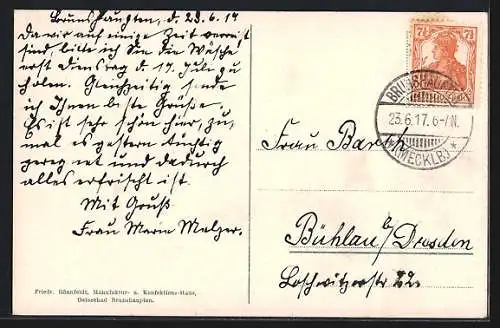 Brunshaupten, d. 23.6.17
Da wir auf einige Zeit verreist
sind, bitte ich Sie die Wäsche
erst Dienstag d. 17. Juli zu
holen. Gleichzeitig sende
ich Ihnen beste Grüße.
Es ist sehr schön hier, zu-
mal es gestern tüchtig
geregnet und dadurch
alles erfrischt ist.
Mit Gruß
Frau Marie Melzer.
Friedr. Manufaktur- u. Konfektions-Haus,
Ostseebad Brunshaupten.
7½ 7½
BRUNSHAUPTEN
23.6.17.6-7N.
*(MECKLB)*
Frau
Bühlau b/Dresden
Loschwitzerstr.